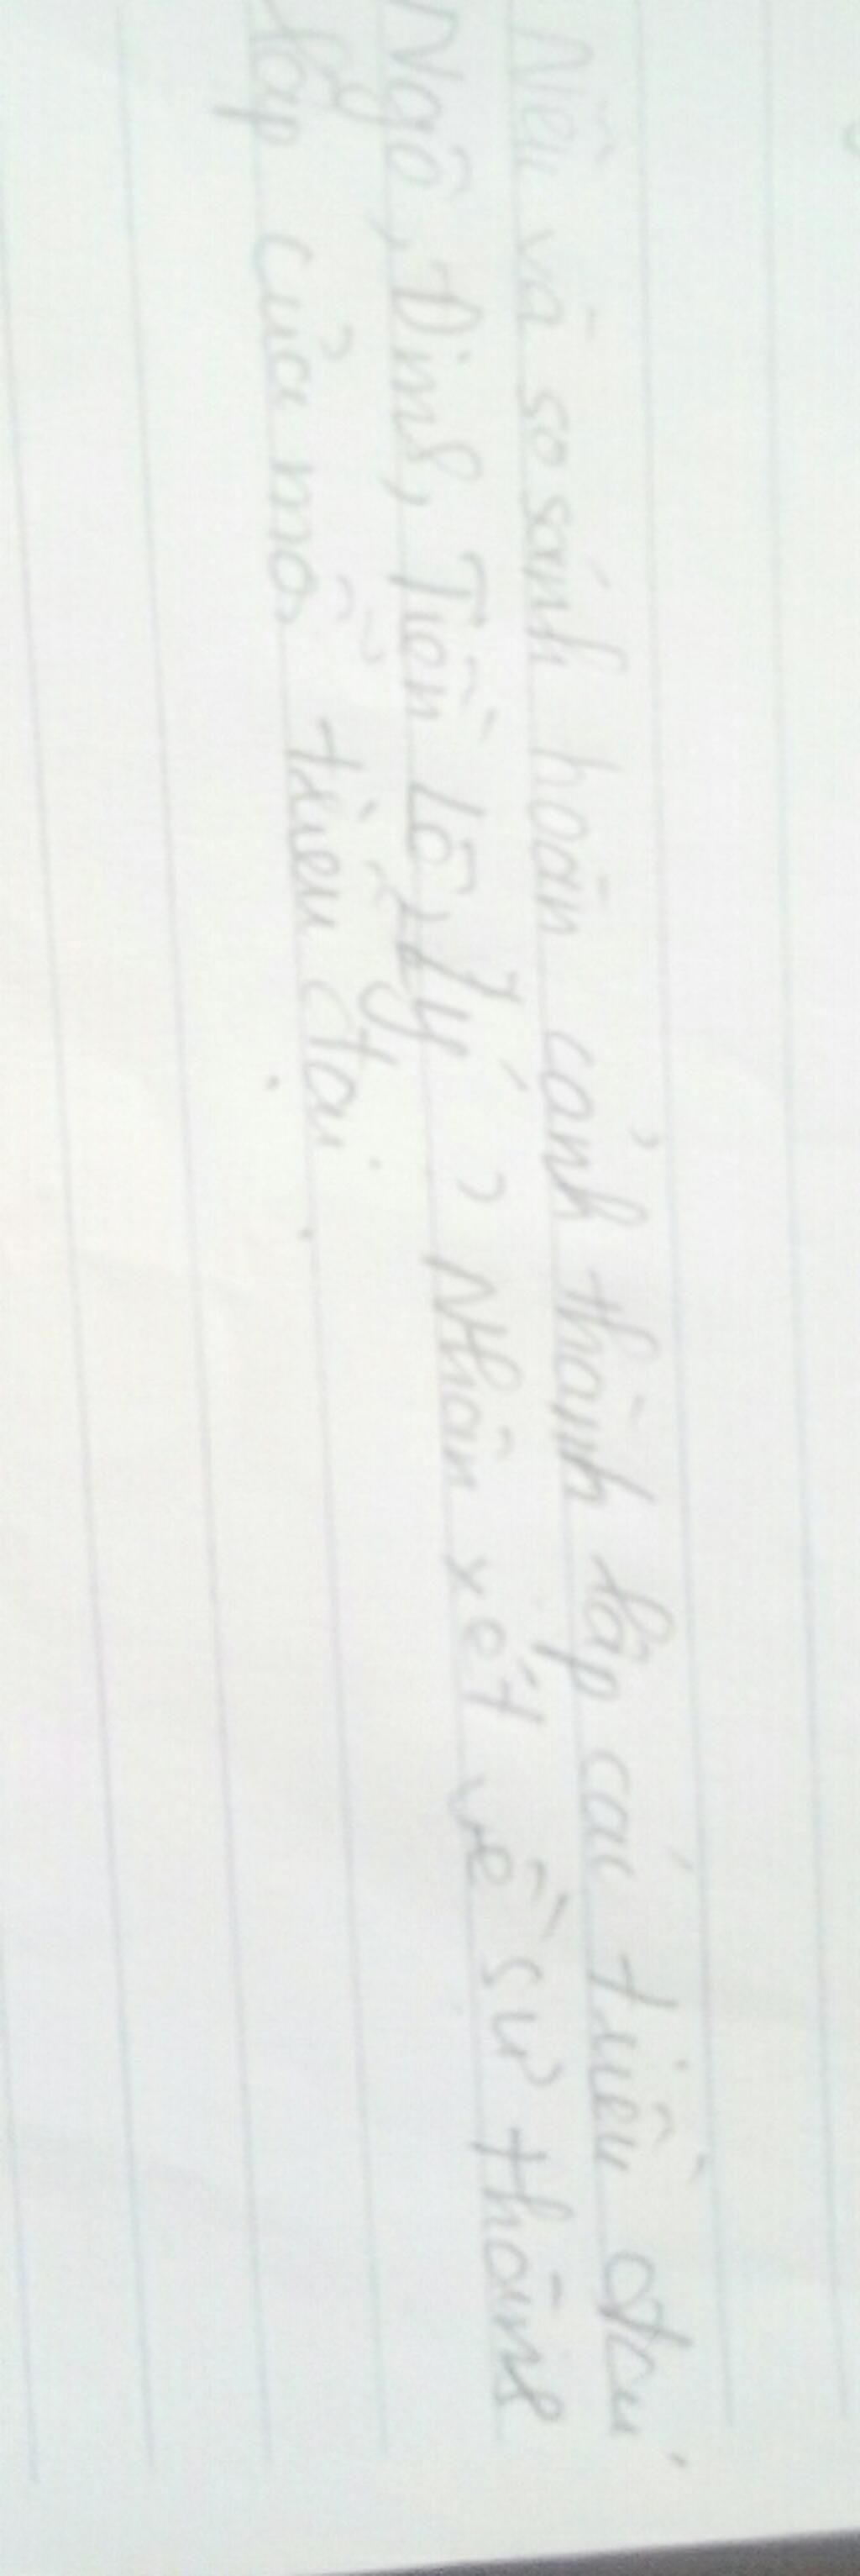 Nêu và so sánh hoàn cảnh thành lập các triều đại
Ngô, Đinh, Tiền Lê, Lý ? Nhân xét về sự thành
lập của mỗi triều đại.